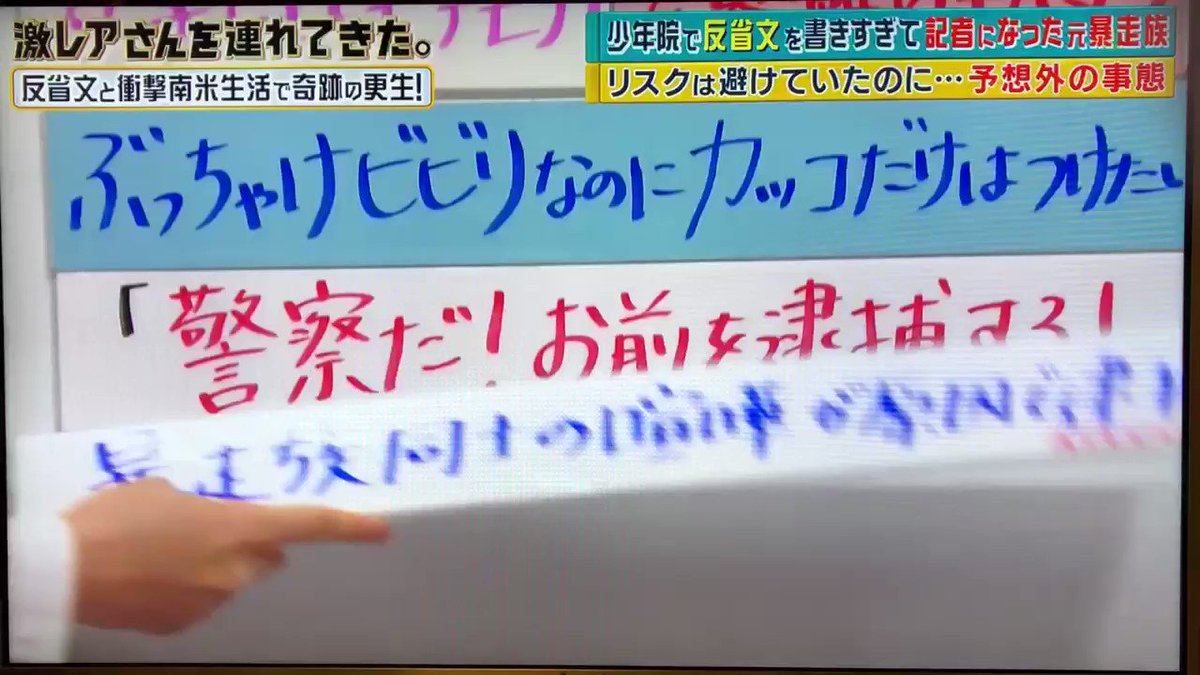 激レアさんを連れてきた。
反省文と衝撃南米生活で奇跡の更生!
少年院で反省文を書きすぎて記者になった元暴走族
リスクは避けていたのに…予想外の事態
ぶっちゃけビビリなのにカッコだけはつけたい
「警察だ!お前を逮捕する!
暴走族同士の